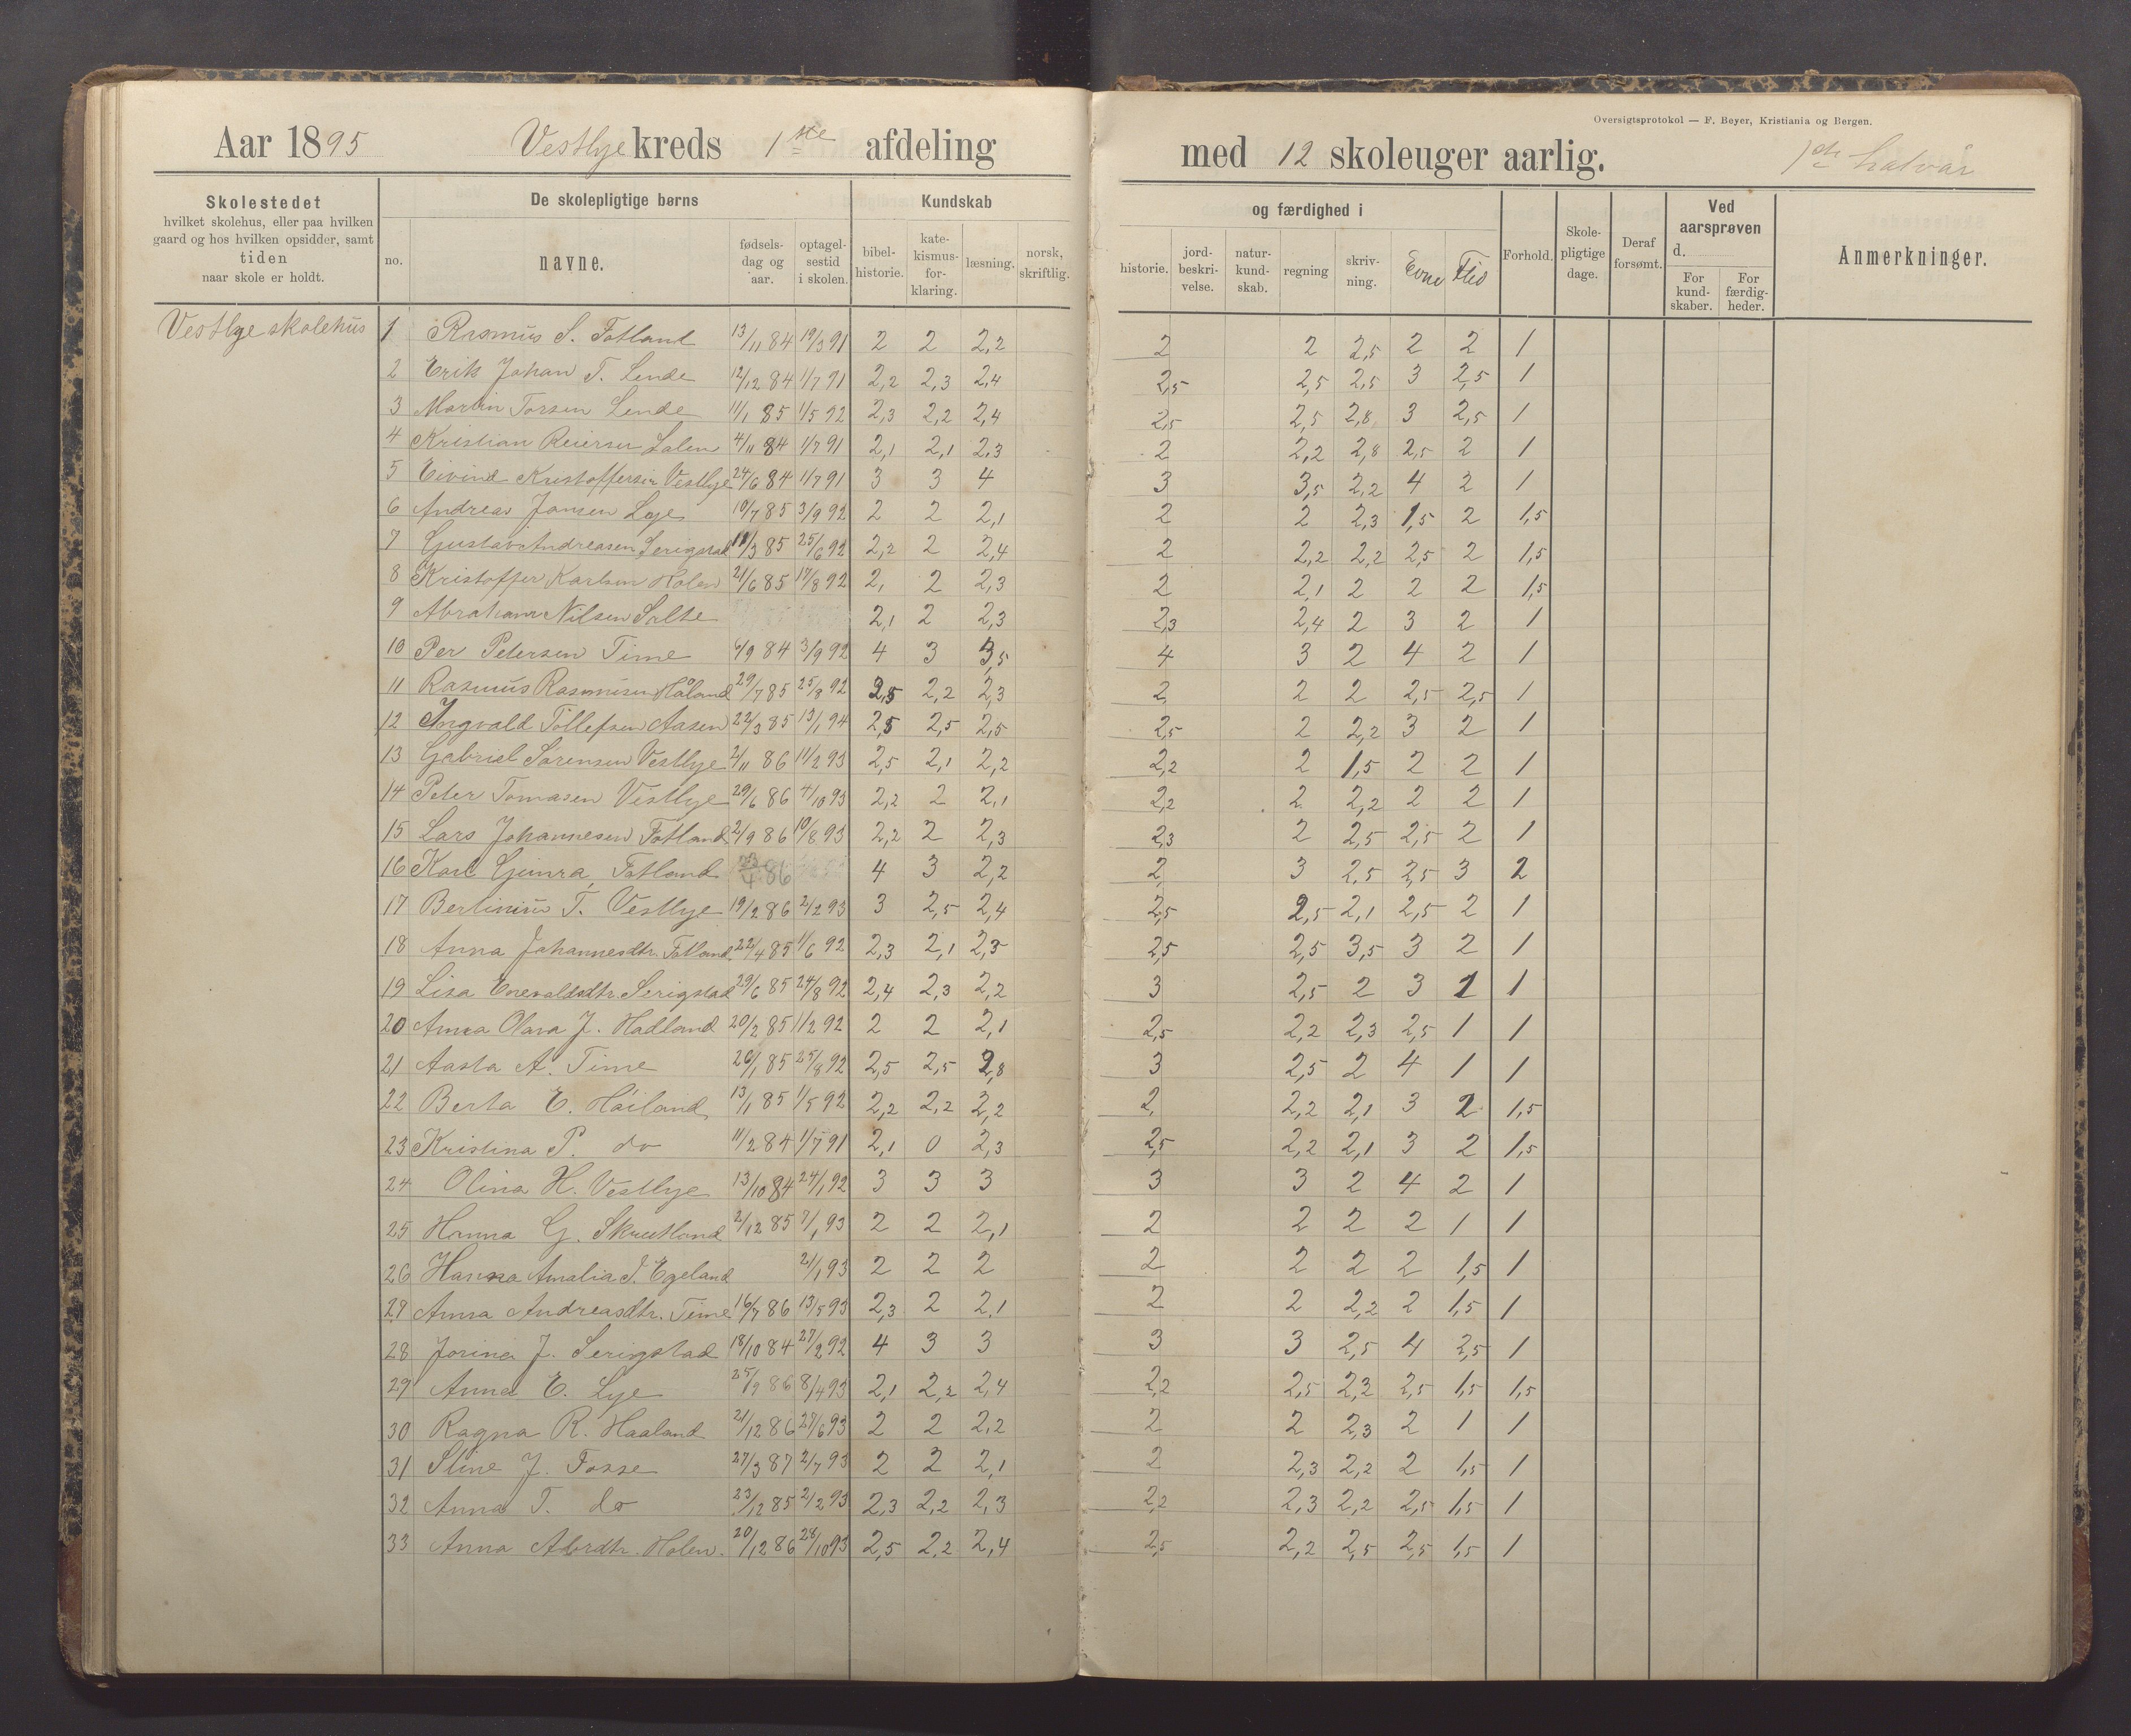 Oversigtsprotokol — F. Beyer, Kristiania og Bergen.
Aar 1895 Vestlye kreds 1ste afdeling med 12 skoleuger aarlig. 1ste halvår
Skolestedet
hvilket skolehus, eller paa hvilken
gaard og hos hvilken opsidder, samt
tiden
naar skole er holdt.
De skolepligtige børns
no. navne. fødsels-dag og aar. optagel-sestid i skolen.
Kundskab og færdighed i
bibel-historie. kate-kismus-for-klaring. læsning. norsk, skriftlig. historie. jord-beskri-velse. natur-kund-skab. regning skriv-ning. Evne Flid
Forhold. Skole-pligtige dage. Deraf forsømt.
Ved aarsprøven d. For kund-skaber. For færdig-heder.
Anmerkninger.
Vestlye skolehus
1 Rasmus S. Fotland 13/11 84 19/3 91 2 2 2,2 2 2 2,5 2 2 1
2 Erik Johan T. Lende 12/12 84 1/7 91 2,2 2,3 2,4 2,5 2,5 2,5 3 2,5 1
3 Martin Torsen Lende 11/1 85 1/5 92 2,3 2,2 2,4 2,5 2,5 2,8 3 2,5 1
4 Kristian Reiersen 4/11 84 1/7 91 2,1 2,1 2,3 2 2,2 2,8 2,5 2 1
5 Eivind Kristoffersen Vestlye 24/6 84 1/7 91 3 3 4 3 3,5 2,2 4 2 1
6 Andreas Jansen Lye 10/7 85 3/9 92 2 2 2,1 2 2 2,3 1,5 2 1,5
7 Gustav Andreasen Serigstad 11/3 85 25/6 92 2,2 2 2,4 2 2,2 2,2 2,5 2 1,5
8 Kristoffer Karlsen Holen 21/6 85 17/8 92 2, 2 2,3 2 2,1 2 2 2 1,5
9 Abraham Nilsen Salte 2,1 2 2,3 2,3 2,4 2 3 2 1
10 Per Petersen Time 6/9 84 3/9 92 4 3 3,5 4 3 2 4 2 1
11 Rasmus Rasmusen Håland 29/7 85 25/8 92 2,5 2,2 2,3 2 2 2 2,5 2,5 1
12 Ingvald Tollefsen Aasen 22/3 85 13/1 94 2,5 2,5 2,5 2,5 2 2,2 3 2 1
13 Gabriel Sørensen Vestlye 2/11 86 11/2 93 2,5 2,1 2,2 2,2 2 1,5 2 2 1
14 Peter Tomasen Vestlye 29/6 86 4/10 93 2,2 2 2,1 2,2 2 2,2 2 2 1
15 Lars Johannesen Fotland 2/9 86 10/8 93 2,2 2 2,3 2,3 2 2,5 2,5 2 1
16 Karl Fotland 23/4 86 4 3 2,2 2, 3 2,5 2,5 3 2
17 Bertinius T. Vestlye 19/2 86 2/2 93 3 2,5 2,4 2,5 2,5 2,1 2,5 2 1
18 Anna Johannesdtr. Fotland 22/4 85 1/6 92 2,3 2,1 2,5 2,5 2,5 3,5 3 2 1
19 Lisa Enevaldsdtr. Serigstad 29/6 85 24/8 92 2,4 2,3 2,2 3 2,5 2 3 1 1
20 Anna Olava J. Hadland 20/2 85 1/2 92 2 2 2,1 2,5 2,2 2,3 2,5 1 1
21 Aasta A. Time 26/1 85 25/8 92 2,5 2,5 2,8 3 2,5 2 4 1 1
22 Berta E. Håland 13/1 85 1/5 92 2,2 2,2 2,2 2, 2,2 2,1 3 2 1,5
23 Kristina P. do 11/2 84 1/7 91 2,1 0 2,3 2,5 2,2 2,1 3 2 1,5
24 Olina H. Vestlye 13/10 84 24/1 92 3 3 3 3 3 2 4 2 1
25 Hanna G. Skrudland 2/12 85 7/1 93 2 2 2,1 2 2 2 2 1 1
26 Hanna Amalia J. Egeland 21/1 93 2 2 2 2 2 2 2 1,5 1
27 Anna Andreasdtr. Time 16/7 86 13/5 93 2,3 2 2,1 2 2 2,2 2 1,5 1
28 Jorina J. Serigstad 18/10 84 27/2 92 4 3 3 3 3 2,5 4 2,5 1
29 Anna E. Lye 25/9 86 8/4 93 2,1 2,2 2,4 2,2 2,5 2,2 2,5 1,5 1,5
30 Ragna R. Haaland 21/12 86 27/6 93 2 2 2,2 2 2 2,3 2 1 1
31 Stine J. Fosse 27/3 87 2/7 93 2 2 2,1 2 2,3 2,2 2 1,5 1
32 Anna T. do 23/12 85 2/2 93 2,3 2,2 2,3 2,2 2,3 2,2 2,5 1,5 1
33 Anna Abrdtr. Holen. 20/12 86 28/10 93 2,5 2,2 2,4 2,5 2,2 2,5 2,5 1,5 1